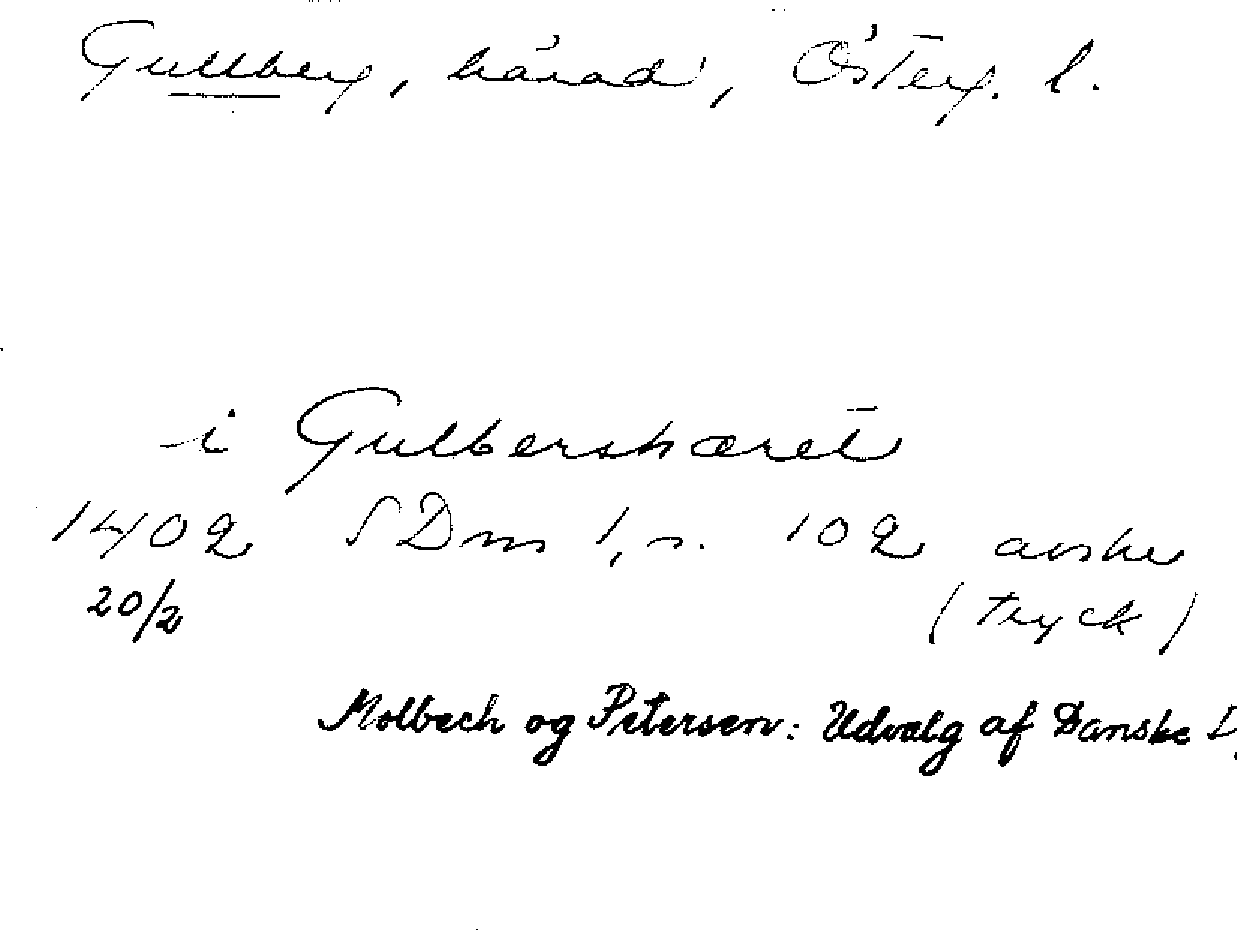 Gullberg, härad, Österg. l.
i Gulbershæret
1402 SDns 1, s. 102 avskr
20/2 (tryck)
Molbech og Petersen: Udvalg af Danske D